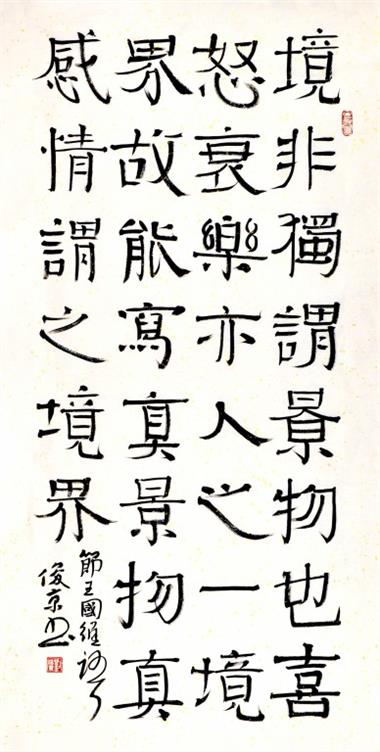 境非獨謂景物也喜
怒衰樂亦人之一境
界故能寫真景物真
感情謂之境界
節王國維
俊京书